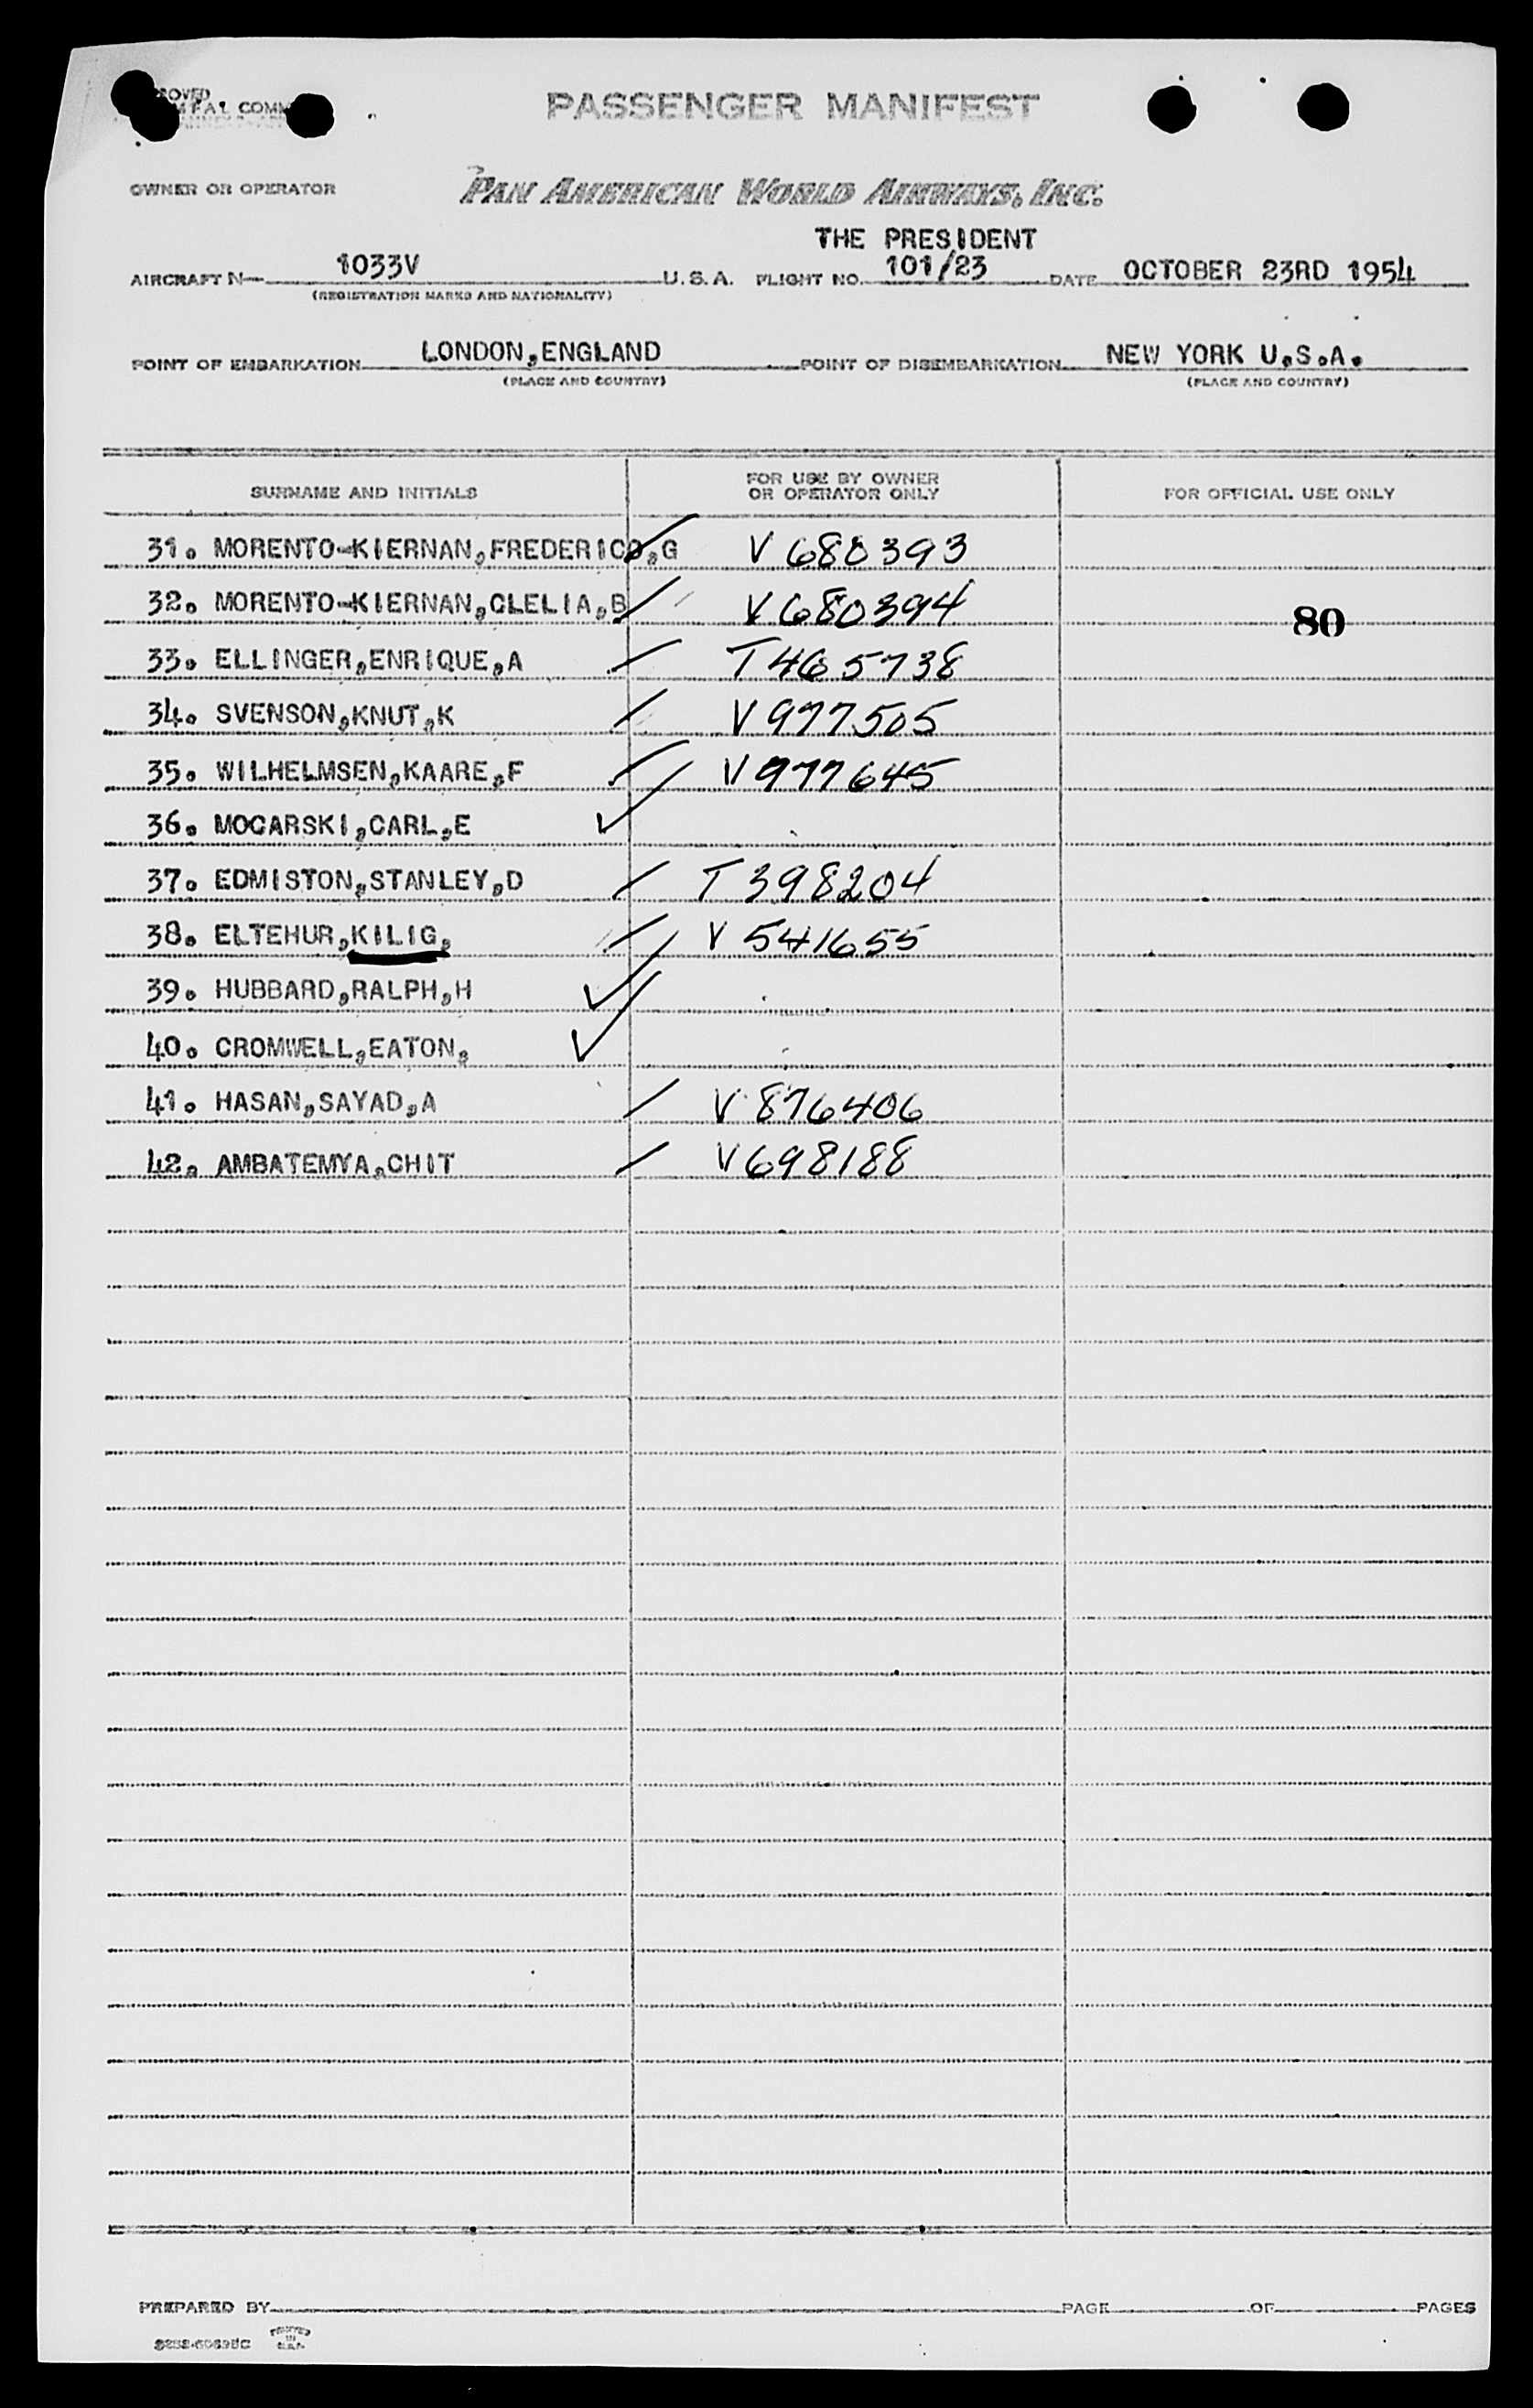 PASSENGER MANIFEST
OWNER OR OPERATOR PAN AMERICAN WORLD AIRWAYS, INC.
THE PRESIDENT
AIRCRAFT N— 1033V U.S.A. FLIGHT NO. 101/23 DATE OCTOBER 23RD 1954
(REGISTRATION MARKS AND NATIONALITY)
POINT OF EMBARKATION LONDON,ENGLAND POINT OF DISEMBARKATION NEW YORK U.S.A.
(PLACE AND COUNTRY) (PLACE AND COUNTRY)
SURNAME AND INITIALS FOR USE BY OWNER OR OPERATOR ONLY FOR OFFICIAL USE ONLY
31. MORENTO-KIERNAN,FREDERICO,G V 680393
32. MORENTO-KIERNAN,CLELIA,B V680394
80
33. ELLINGER,ENRIQUE,A T465738
34. SVENSON,KNUT,K V977505
35. WILHELMSEN,KAARE,F V977645
36. MOCARSKI,CARL,E
37. EDMISTON,STANLEY,D T398204
38. ELTEHUR,KILIG, V 541655
39. HUBBARD,RALPH,H
40. CROMWELL,EATON,
41. HASAN,SAYAD,A V 876406
42. AMBATEMYA,CHIT V698188
PREPARED BY PAGE OF PAGES
PRINTED IN